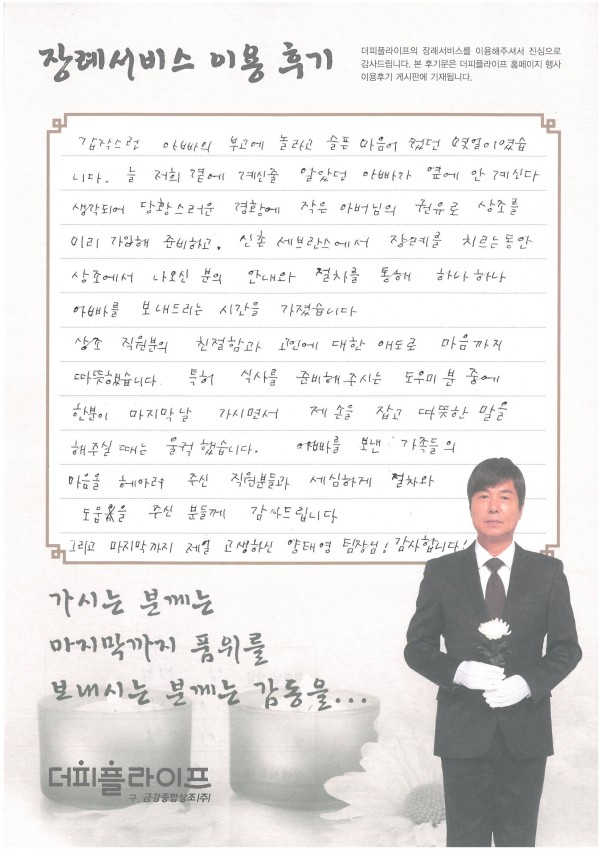 장례서비스 이용 후기
더피플라이프의 장례서비스를 이용해주셔서 진심으로
감사드립니다. 본 후기문은 더피플라이프 홈페이지 행사
이용후기 게시판에 기재됩니다.
갑작스런 아빠의 부고에 놀라고 슬픈 마음이 컸던 몇일이였습
니다. 늘 저희 곁에 계신줄 알았던 아빠가 옆에 안 계신다
생각되어 당황스러운 경황에 작은 아버님의 권유로 상조를
미리 가입해 준비하고, 신촌 세브란스에서 장례를 치르는동안
상조에서 나오신 분의 안내와 절차를 통해 하나 하나
아빠를 보내드리는 시간을 가졌습니다
상조 직원분의 친절함과 고인에 대한 애도로 마음까지
따뜻했습니다. 특히 식사를 준비해주시는 도우미 분 중에
한분이 마지막날 가시면서 제 손을 잡고 따뜻한 말을
해주실 때는 울컥했습니다. 아빠를 보낸 가족들의
마음을 헤아려 주신 직원분들과 세심하게 절차와
도움을 주신 분들께 감사드립니다
그리고 마지막까지 제일 고생하신 양태영 팀장님! 감사합니다!
가시는 분께는
마지막까지 품위를
보내시는 분께는 감동을...
더피플라이프
구. 금강종합상조(주)